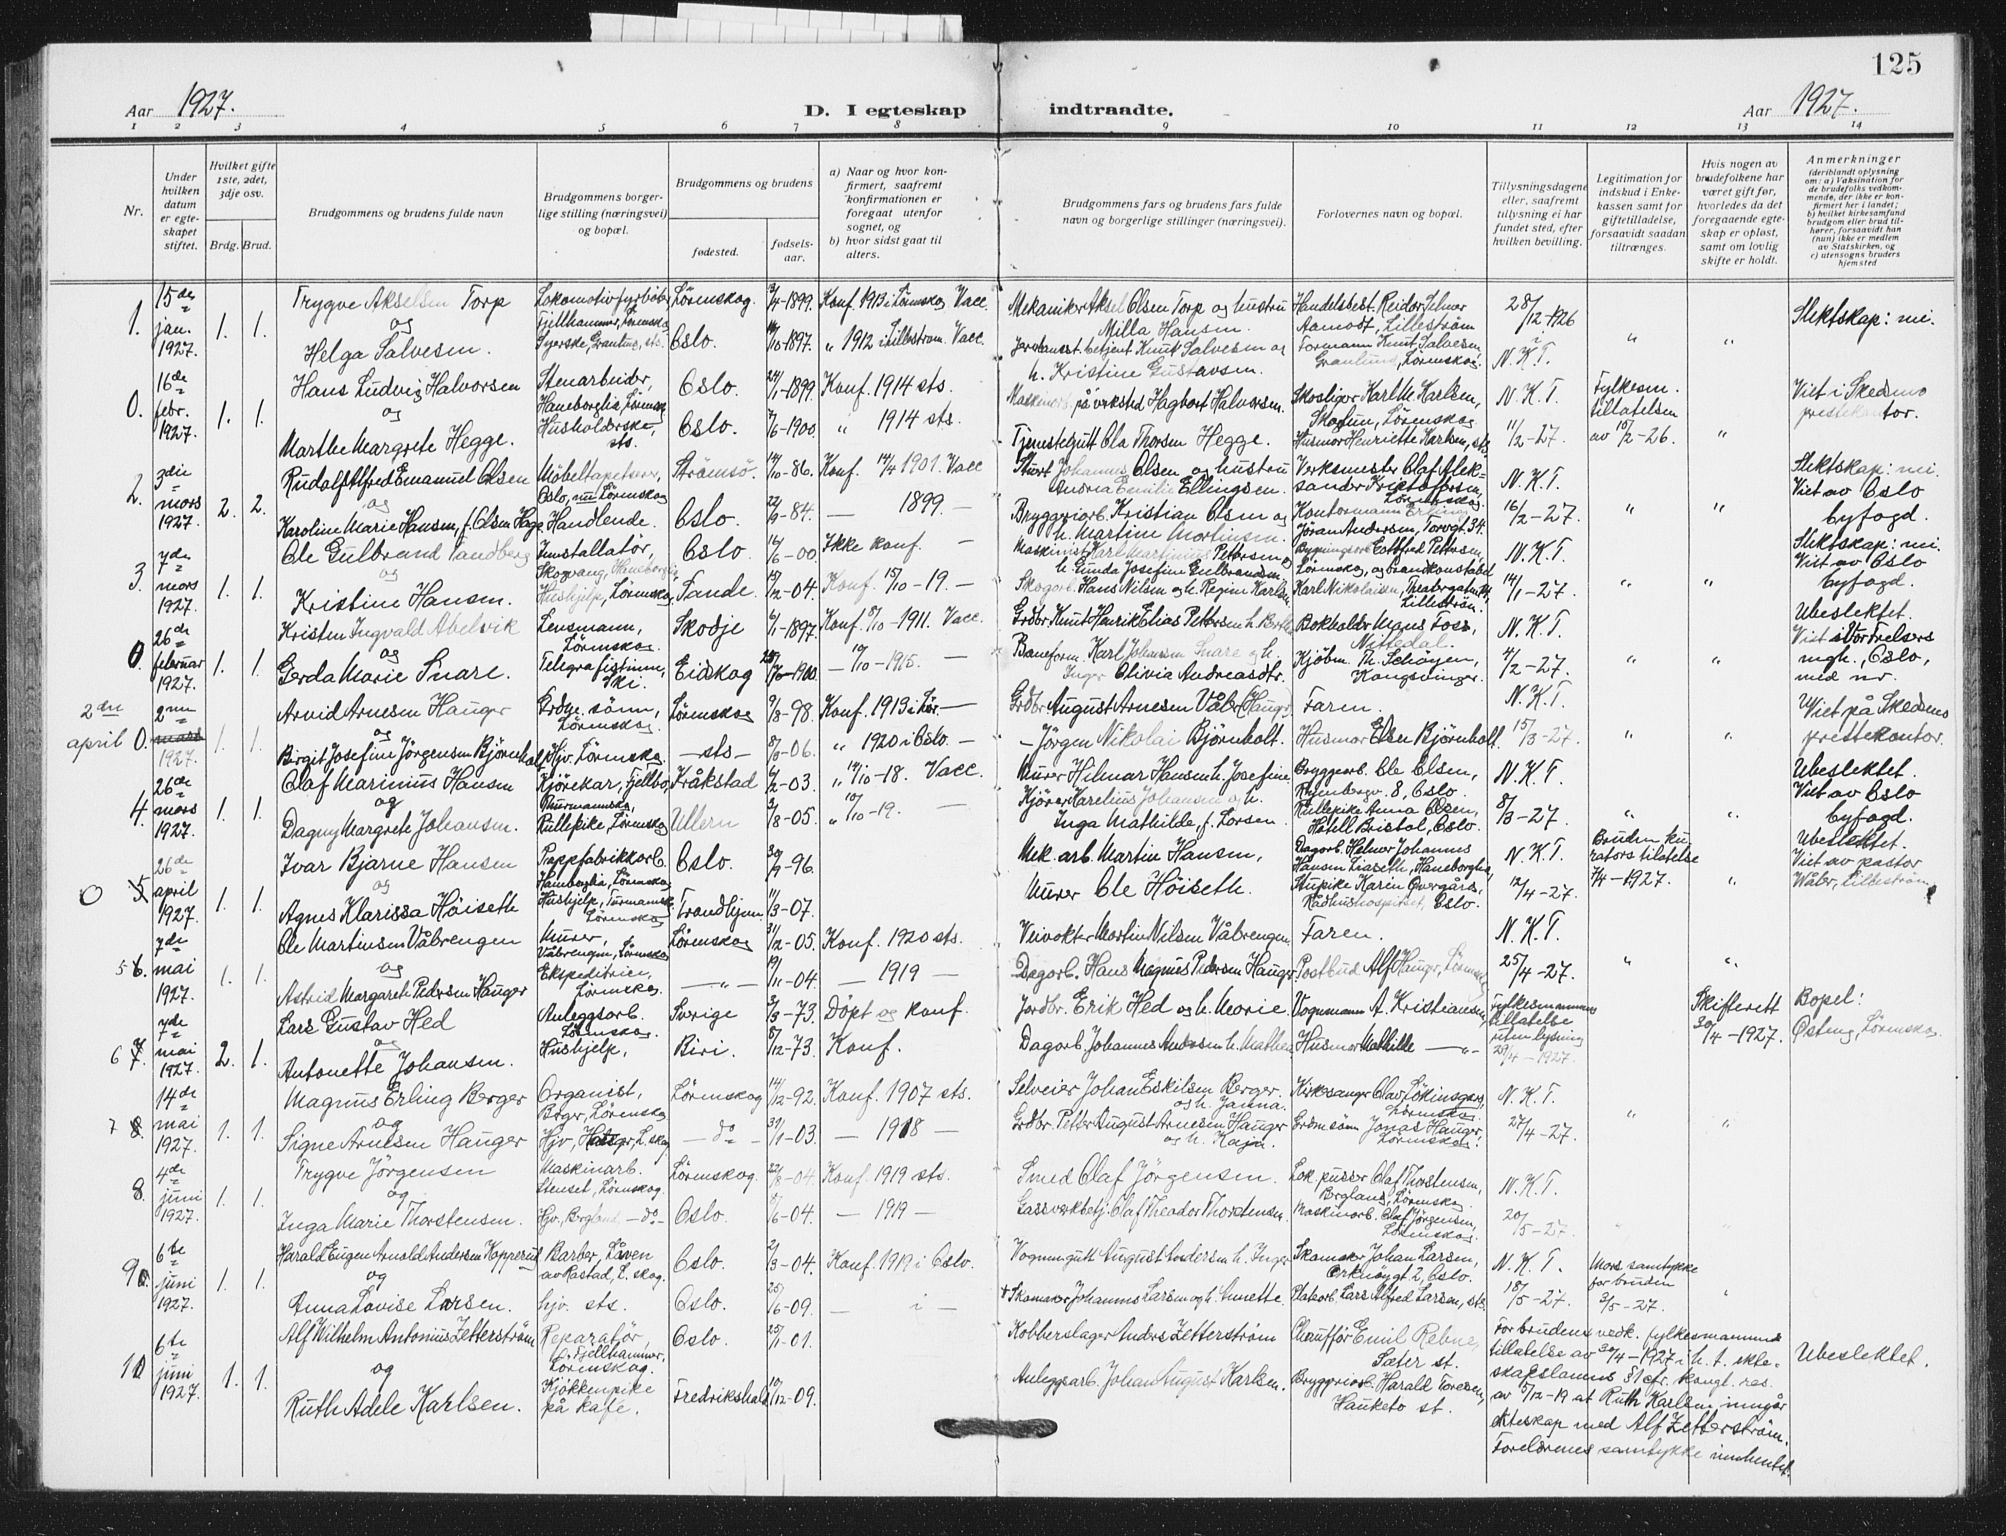 125
Aar 1927.
D. I egteskap indtraadte.
Aar 1927.
1 2 3 4 5 6 7 8 9 10 11 12 13 14
Nr.
Under hvilken datum er egteskapet stiftet.
Hvilket gifte 1ste, 2det, 3dje osv.
Brdg. Brud.
Brudgommens og brudens fulde navn
Brudgommens borgerlige stilling (næringsvei) og bopæl.
Brudgommens og brudens
fødested.
fødselsaar.
a) Naar og hvor konfirmert, saafremt konfirmationen er foregaat utenfor sognet, og
b) hvor sidst gaat til alters.
Brudgommens fars og brudens fars fulde navn og borgerlige stillinger (næringsvei).
Forlovernes navn og bopæl.
Tillysningsdagene eller, saafremt tillysning ei har fundet sted, efter hvilken bevilling.
Legitimation for indskud i Enkekassen samt for giftetilladelse, forsaavidt saadan tiltrænges.
Hvis nogen av brudefolkene har været gift før, hvorledes da det foregaaende egteskap er opløst, samt om lovlig skifte er holdt.
Anmerkninger
(deriblandt oplysning om: a) Vaksination for de brudefolks vedkommende, der ikke er konfirmert her i landet; b) hvilket kirkesamfund brudgom eller brud tilhører, forsaavidt han (hun) ikke er medlem av Statskirken, og c) utensogns bruders hjemsted
1. 15de jan. 1927. 1. 1.
Trygve Akselsen Torp og Helga Salvesen.
Lokomotivfyrbøter Fjellhammer, Lørenskog
Syerske, Granlund, sts.
Lørenskog. 3/4-1899. Konf. 1913 i Lørenskog Vacc.
Oslo. 1897. " 1912 i Lillestrøm. Vacc.
Mekaniker Aksel Olsen Torp og hustru Milla Hansen.
Jernbanest. betjent Knut Salvesen og h. Kristine Gustavsen.
Handelsbest. Reidar Aamodt, Lillestrøm
Formann Knut Salvesen Granlund, Lørenskog.
28/12-1926 N.K.T. " "
Slektskap: nei.
0. 16de febr. 1927. 1. 1.
Hans Ludvig Halvorsen og Marthe Margrete Hegge.
Stenarbeider, Haneborglia, Lørenskog
Husholderske, sts.
Oslo. 24/1-1899. Konf. 1914 sts.
Oslo. 7/6-1900 " 1914 sts.
Maskinarb. på verksted Hagbart Halvorsen.
Tjenestegutt Ola Thorsen Hegge.
Skoeliger Karl M. Karlsen, Skoglun, Lørenskog
Husmor Henriette Karlsen, sts.
N.K.T. 11/2-27.
Fylkesm. tillatelsen av 15/2-26. "
Viet i Skedsmo prestekontor.
2. 3die mars 1927. 2. 2.
Rudolf Alfred Emanuel Olsen og Karoline Marie Hansen, f. Olsen Haga
Møbeltapetserer, Oslo, nu Lørenskog
Handlende.
Strømsø. 14/10-86. Konf. 14/4 1901. Vacc
Oslo. 22/9-84. — 1899. —
Johannes Olsen og hustru Andrea Emilie Ellingsen.
Bryggeriarb. Kristian Olsen og h. Martine Mortensen.
Verksmester Olaf Aleksander Kristoffersen, Lørenskog
Kontormann Erling Jøran Andersen, Torvgt. 34.
N.K.T. 16/2-27. " "
Slektskap: nei. Viet av Oslo byfogd.
3. 7de mars 1927. 1. 1.
Ole Gulbrand Sandberg og Kristine Hansen.
Installatør, Skogvang, Haneborglia,
Hushjelp, Lørenskog
Oslo. 14/6-00. Ikke konf. —
Sande. 15/2-04. Konf. 15/10-19. —
Maskinist Karl Martinius Pettersen og h. Gunda Josefine Gulbrandsen
Skogarb. Hans Nilsen og h. Regine Karlsen
Bygningsarb. Gottfred Pettersen, Lørenskog, og brandkonstabel Karl Nikolaisen, Lillestrøm.
N.K.T. 14/1-27. " "
Slektskap: nei. Viet av Oslo byfogd.
0. 26de februar 1927. 1. 1.
Kristen Ingvald Abelvik og Gerda Marie Snare.
Lensmann, Lørenskog.
Telegrafistinne, Ski.
Skodje 6/1-1897. Konf. 8/10-1911. Vacc.
Eidskog 1900. — 10/10-1915. —
Grdbr. Knut Henrik Elias Pettersen h. Berthe
Baneform. Karl Johansen Snare og h. Inger Olivia Andreasdtr.
Bokholder Mons Foss, Nittedal.
Kjøbm. Th. Schøyen, Kongsvinger.
N.K.T. 4/2-27. " "
Ubeslektet. Viet i Vor Frelsers mgh., Oslo, med nr.
2den april 0. 2nen mars 1927. 1. 1.
Arvid Arnesen Hauger og Birgit Josefine Jørgensen Bjørnholt
Grdbr. sønn, Lørenskog
Hjv. Lørenskog.
Lørenskog 9/8-98. Konf. 1913 i Lør. —
— sts — 8/8-06. " 1920 i Oslo. —
Grdbr. August Arnesen Våler (Hauger)
— Jørgen Nikolai Bjørnholt.
Faren.
Husmor Elsa Bjørnholt.
N.K.T. 15/3-27. " "
Viet på Skedsmo prestekontor.
4. 26de mars 1927. 1. 1.
Olaf Marinius Hansen og Dagny Margrete Johansen.
Kjørekar, Fjellbo,
Rullepike, Lørenskog
Kråkstad 6/2-03. " 14/10-18. Vacc.
Ullern 3/8-05. " 10/10-19. —
Murer Hilmar Hansen h. Josefine
Kjører Karelius Johansen og h. Inga Mathilde f. Larsen.
Bryggerarb. Ole Olsen, Ryenbergv. 8, Oslo.
Rullepike Anna Olsen, Hotell Bristol, Oslo.
N.K.T. 8/3-27. " "
Ubeslektet. Viet av Oslo byfogd.
0 5. 26de april 1927. 1. 1.
Ivar Bjarne Hansen og Agnes Klarissa Høiseth
Pappfabrikkarb. Haneborglia, Lørenskog
Hushjelp, Furmannsk., Lørenskog
Oslo. 30/9-96.
Trondhjem 11/3-07.
Mek. arb. Martin Hansen,
Murer Ole Høiseth.
Dagarb. Helmer Johannes Hansen Liaseth, Haneborglia,
Stupike Karin Overgård, Rådhushospitset, Oslo.
N.K.T. 12/4-27.
Bruden kurators tilatelse 7/4-1927. "
Ubeslektet. Viet av pastor Wåler, Lillestrøm.
5 6. 7de mai 1927. 1. 1.
Ole Martinsen Våbrengen og Astrid Margarete Pedersen Hauger
Murer, Våbrengen, Lørenskog
Ekspeditrise, Lørenskog.
Lørenskog 31/12-05. Konf. 1920 sts.
— " — 19/11-04. — 1919 —
Veivokter Martin Nilsen Våbrengen.
Dagarb. Hans Magnus Pedersen Hauger.
Faren.
Postbud Alf Hauger, Lørenskog
N.K.T. 25/4-27. " "
6 7. 7de mai 1927. 2. 1.
Lars Gustav Hed og Antonette Johansen.
Anleggsarb. Lørenskog.
Hushjelp,
Sverige 3/3-73. Døpt og konf.
Biri. 8/12-73. Konf.
Jordbr. Erik Hed og h. Marie.
Dagarb. Johannes Andersen h. Mathea
Vognmann A. Kristiansen,
Husmor Mathilde — " —
Fylkesmannens tillatelse uten lysning 29/4-1927.
Skifterett 30/4-1927.
Bopel: Østeng, Lørenskog.
7 8. 14de mai 1927. 1. 1.
Magnus Erling Berger og Signe Arnesen Hauger
Organist, Berger, Lørenskog
Hjv., Hauger, L.skog
Lørenskog 14/12-92. Konf. 1907 sts.
— do — 31/1-03. — 1918 —
Selveier Johan Eskilsen Berger og h. Janna.
Grdbr. Petter August Arnesen Hauger og h. Kaja.
Kirkesanger Olav Løkinsgard, Lørenskog.
Grdmsønn Jonas Hauger, Lørenskog.
N.K.T. 27/4-27. " "
8. 4de juni 1927. 1. 1.
Trygve Jørgensen og Inga Marie Thorstensen.
Maskinarb. Stenset, Lørenskog.
Hjv., Bergland, — do —
Lørenskog. 22/8-04. Konf. 1919 sts.
Oslo. 6/6-04. — 1919 —
Smed Olaf Jørgensen.
Gassverkbetj. Olaf Theodor Thorstensen.
Lok. pusser Olaf Thorstensen, Bergland, Lørenskog
Maskinarb. Olaf Jørgensen, Lørenskog.
N.K.T. 20/5-27.
9. 6te juni 1927. 1. 1.
Harald Eugen Arnold Andersen Kopperud og Anna Lovise Larsen.
Barber, Låven av Rastad, L.skog.
hjv. sts.
Oslo. 2/3-04. Konf. 1919 i Oslo.
Oslo. 25/6-09. — i —
Vogngutt August Andersen h. Inger
+ Skomaker Johannes Larsen og h. Annette.
Skomaker Johan Larsen, Orknøygt. 2, Oslo.
Platearb. Lars Alfred Larsen, sts.
N.K.T. 18/5-27.
Mors samtykke for bruden 3/5-27. "
10. 6te juni 1927. 1. 1.
Alf Wilhelm Antonius Zetterstrøm og Ruth Adele Karlsen.
Reparatør, Fjellhammer, Lørenskog.
Kjøkkenpike på kafe.
Oslo. 25/1-01.
Fredrikshald 10/12-09.
Kobberslager Anders Zetterstrøm
Anleggsarb. Johan August Karlsen.
Chauffør Emil Rebne, Sæter st.
Bryggeriarb. Harald Foresen, Hauketo st.
For brudens vedk. fylkesmannens tillatelse av 30/4-1927 i h. t. ekteskapslovens § 1 cfr. kongl. res. av 5/12-19 at Ruth Karlsen inngår ekteskap med Alf Zetterstrøm. Foreldrenes samtykke innhentet.
Ubeslektet.